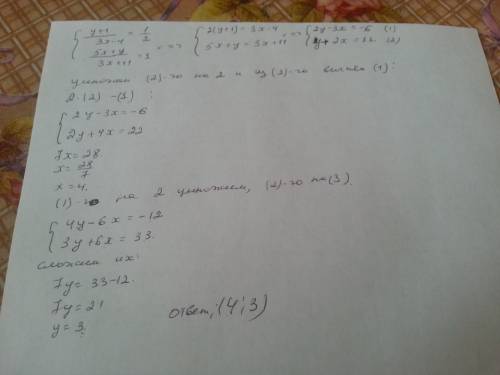 { (y+1)/(3x-4) = 1/2 => { 2(y+1) = 3x-4 => { 2y-3x=-6 (1)
{ (5x+y)/(3x+11) = 1 { 5x+y = 3x+11 { y+2x = 11 (2)
умножим (2)-го на 2 и из (2)-го вычтем (1):
2·(2) -(1) :
{ 2y-3x=-6
{ 2y+4x=22
7x=28
x=28/7
x=4.
(1)-го на 2 умножаем, (2)-го на (3).
{ 4y-6x=-12
{ 3y+6x=33.
сложим их:
7y=33-12.
7y=21
y=3.
ответ: (4;3)